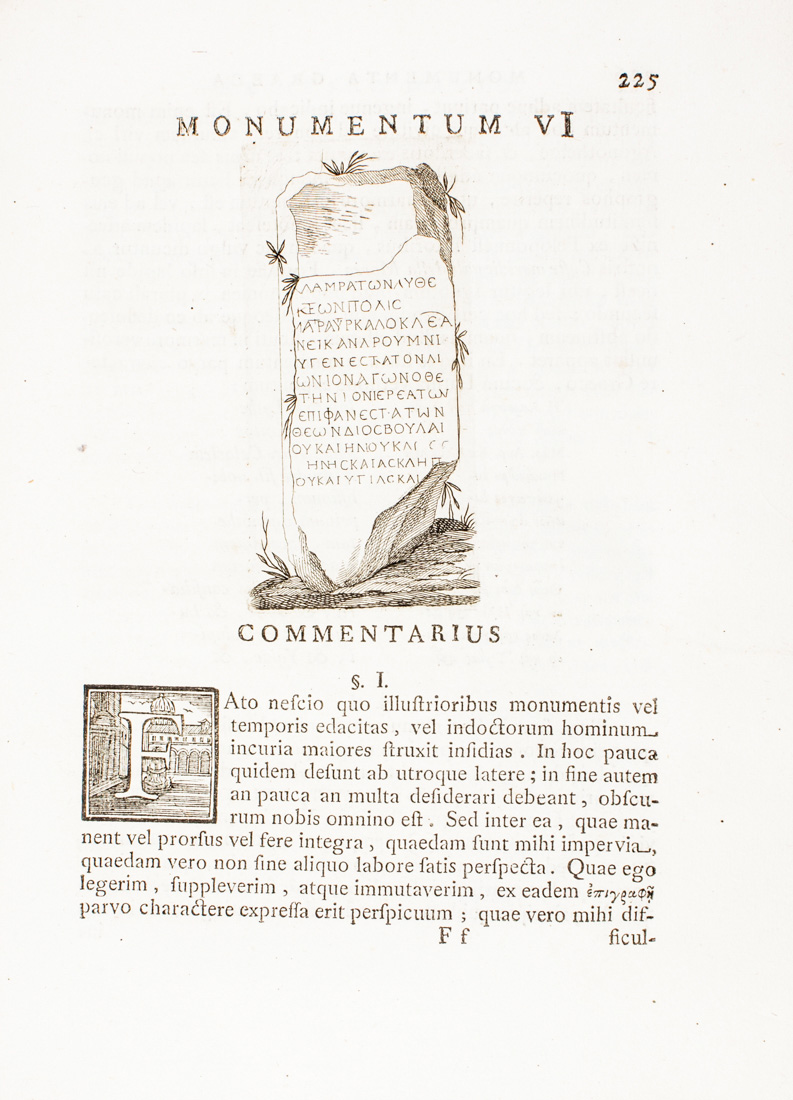 225
MONUMENTUM VI
ΛΑΜΡΑΤΩΝΛΥΘΕ
ΚΕΩΝΠΟΛΙϹ
ΜΑΡΑΥΡΚΑΛΟΚΛΕΑ
ΝΕΙΚΑΝΑΡΟΥΜΝΙ
ΥΓΕΝΕϹΤΑΤΟΝΑΙ
ΩΝΙΟΝΑΓΩΝΟΘΕ
ΤΗΝΙΟΝΙΕΡΕΑΤΩΝ
ΕΠΙΦΑΝΕϹΤΑΤΩΝ
ΘΕΩΝΔΙΟϹΒΟΥΛΑΙ
ΟΥΚΑΙΗΛΙΟΥΚΑΙ ϹϹ
ΗΝΗϹΚΑΙΑϹΚΛΗΠ
ΟΥΚΑΙΥΓΙΑϹΚΑΙ
COMMENTARIUS
§. I.
FAto neſcio quo illuſtrioribus monumentis vel
temporis edacitas, vel indoctorum hominum
incuria maiores ſtruxit inſidias. In hoc pauca
quidem deſunt ab utroque latere; in fine autem
an pauca an multa deſiderari debeant, obſcu-
rum nobis omnino eſt. Sed inter ea, quae ma-
nent vel prorſus vel fere integra, quaedam ſunt mihi impervia,
quaedam vero non ſine aliquo labore ſatis perſpecta. Quae ego
legerim, ſuppleverim, atque immutaverim, ex eadem ἐπιγραφῇ
parvo charactere expreſſa erit perſpicuum; quae vero mihi dif-
F f ficul-